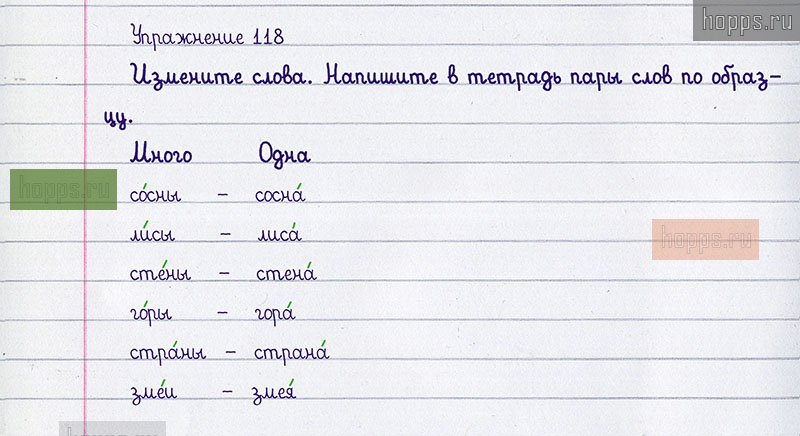 hopps.ru
Упражнение 118
Измените слова. Напишите в тетрадь пары слов по образ-
цу.
Много Одна
hopps.ru
со́сны – сосна́
ли́сы – лиса́
hopps.ru
сте́ны – стена́
го́ры – гора́
стра́ны – страна́
зме́и – змея́
hopps.ru